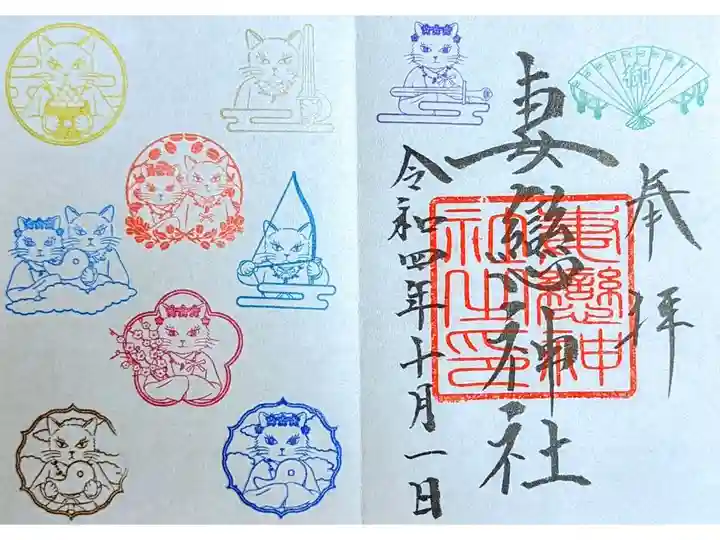 奉拝
妻戀神社
令和四年十月一日
妻戀神
社之印
御